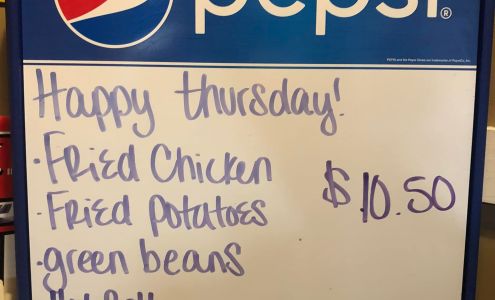 pepsi®
PEPSI and the Pepsi Globe are trademarks of PepsiCo, Inc.
Happy thursday!
·Fried Chicken
·Fried potatoes
$10.50
·green beans